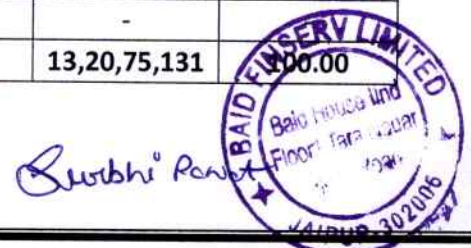 -
13,20,75,131 100.00
BAID FINSERV LIMITED
Baid House IInd
Floor, Tara
JAIPUR-302006
Surbhi Rawat